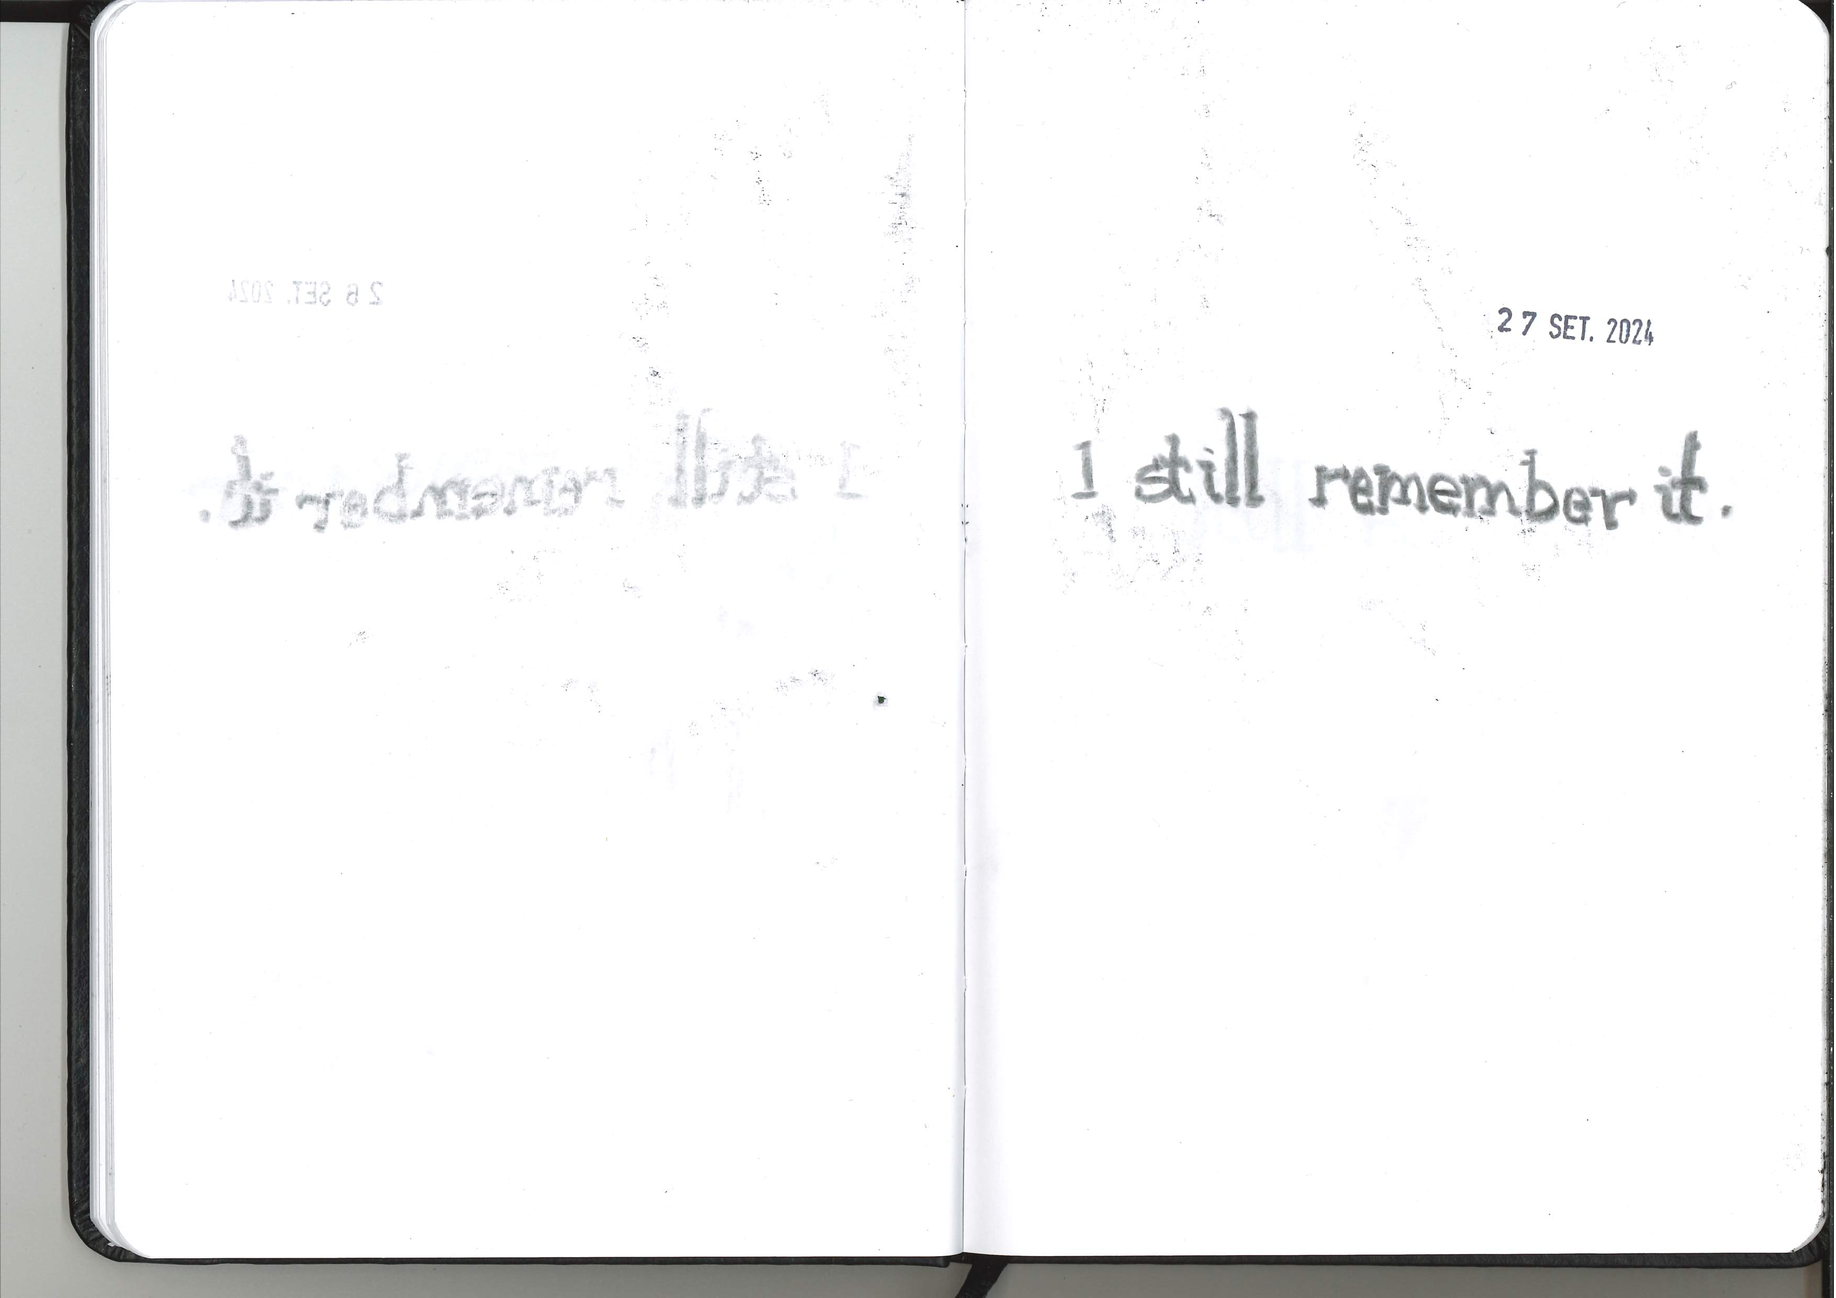 26 SET. 2024
I still remember it.
27 SET. 2024
I still remember it.